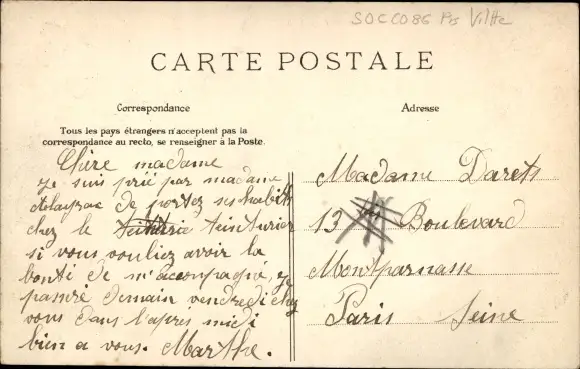 SOCCO86 Ps Vil
CARTE POSTALE
Correspondance
Adresse
Tous les pays étrangers n'acceptent pas la
correspondance au recto, se renseigner à la Poste.
Chère madame
je suis prié par madame
de portez ses habits
chez le teinturier
si vous vouliez avoir la
bonté de m'accompagné, je
passeré demain vendredi chez
vous dans l'après midi
bien a vous. Marthe.
Madame Darets
13 Boulevard
Montparnasse
Paris Seine